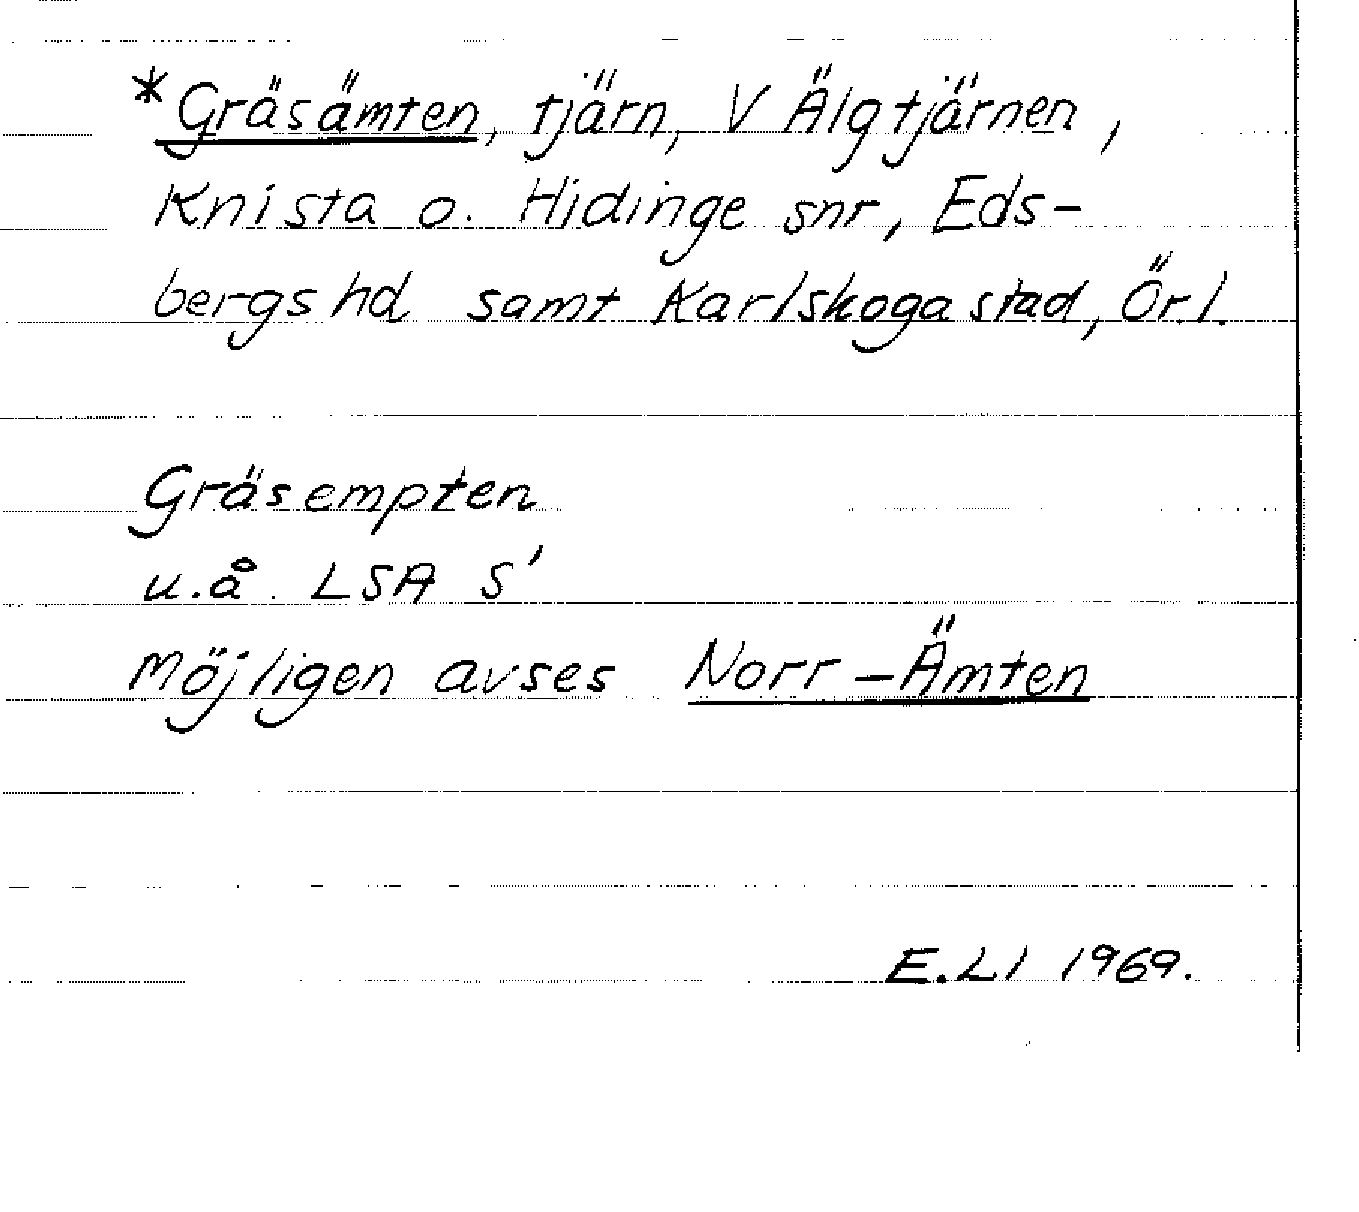 *Gräsämten, tjärn, V Älgtjärnen,
Knista o. Hidinge snr, Eds-
bergs hd samt Karlskoga stad, Ör.l.
Gräsempten
u.å. LSA S'
möjligen avses Norr-Ämten
E.Ll 1969.